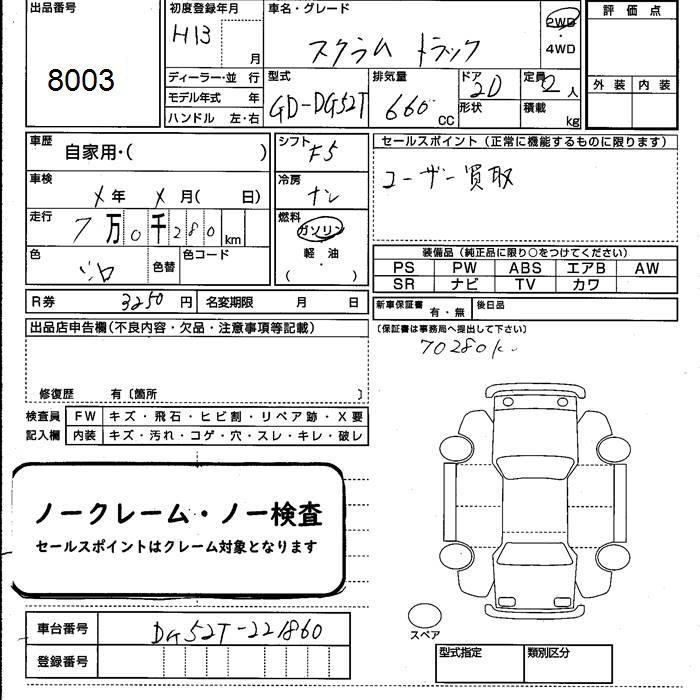 出品番号
8003
初度登録年月
H13
月
ディーラー・並 行
モデル年式 年
ハンドル 左・右
車名・グレード
スクラム トラック
2WD
・
4WD
型式
GD-DG52T
排気量
660
CC
ドア
2D
形状
定員
2
人
積載
kg
評価点
外装 内装
車歴
自家用・( )
車検
メ 年 メ 月( 日)
走行
7 万 0 千 2 8 0 km
色
シロ
色替
色コード
シフト
F5
冷房
ナシ
燃料
ガソリン
軽・油
( )
セールスポイント(正常に機能するものに限ります)
ユーザー買取
装備品(純正品に限り○をつけてください)
PS PW ABS エアB AW
SR ナビ TV カワ
R券 3250 円 名変期限 月 日
新車保証書 有・無 後日品
(保証書は事務局へ提出して下さい)
70280k
出品店申告欄(不良内容・欠品・注意事項等記載)
修復歴 有〔箇所 〕
検査員 FW キズ・飛石・ヒビ割・リペア跡・X要
記入欄 内装 キズ・汚れ・コゲ・穴・スレ・キレ・破レ
ノークレーム・ノー検査
セールスポイントはクレーム対象となります
車台番号 DG52T-221860
登録番号
スペア
型式指定 類別区分